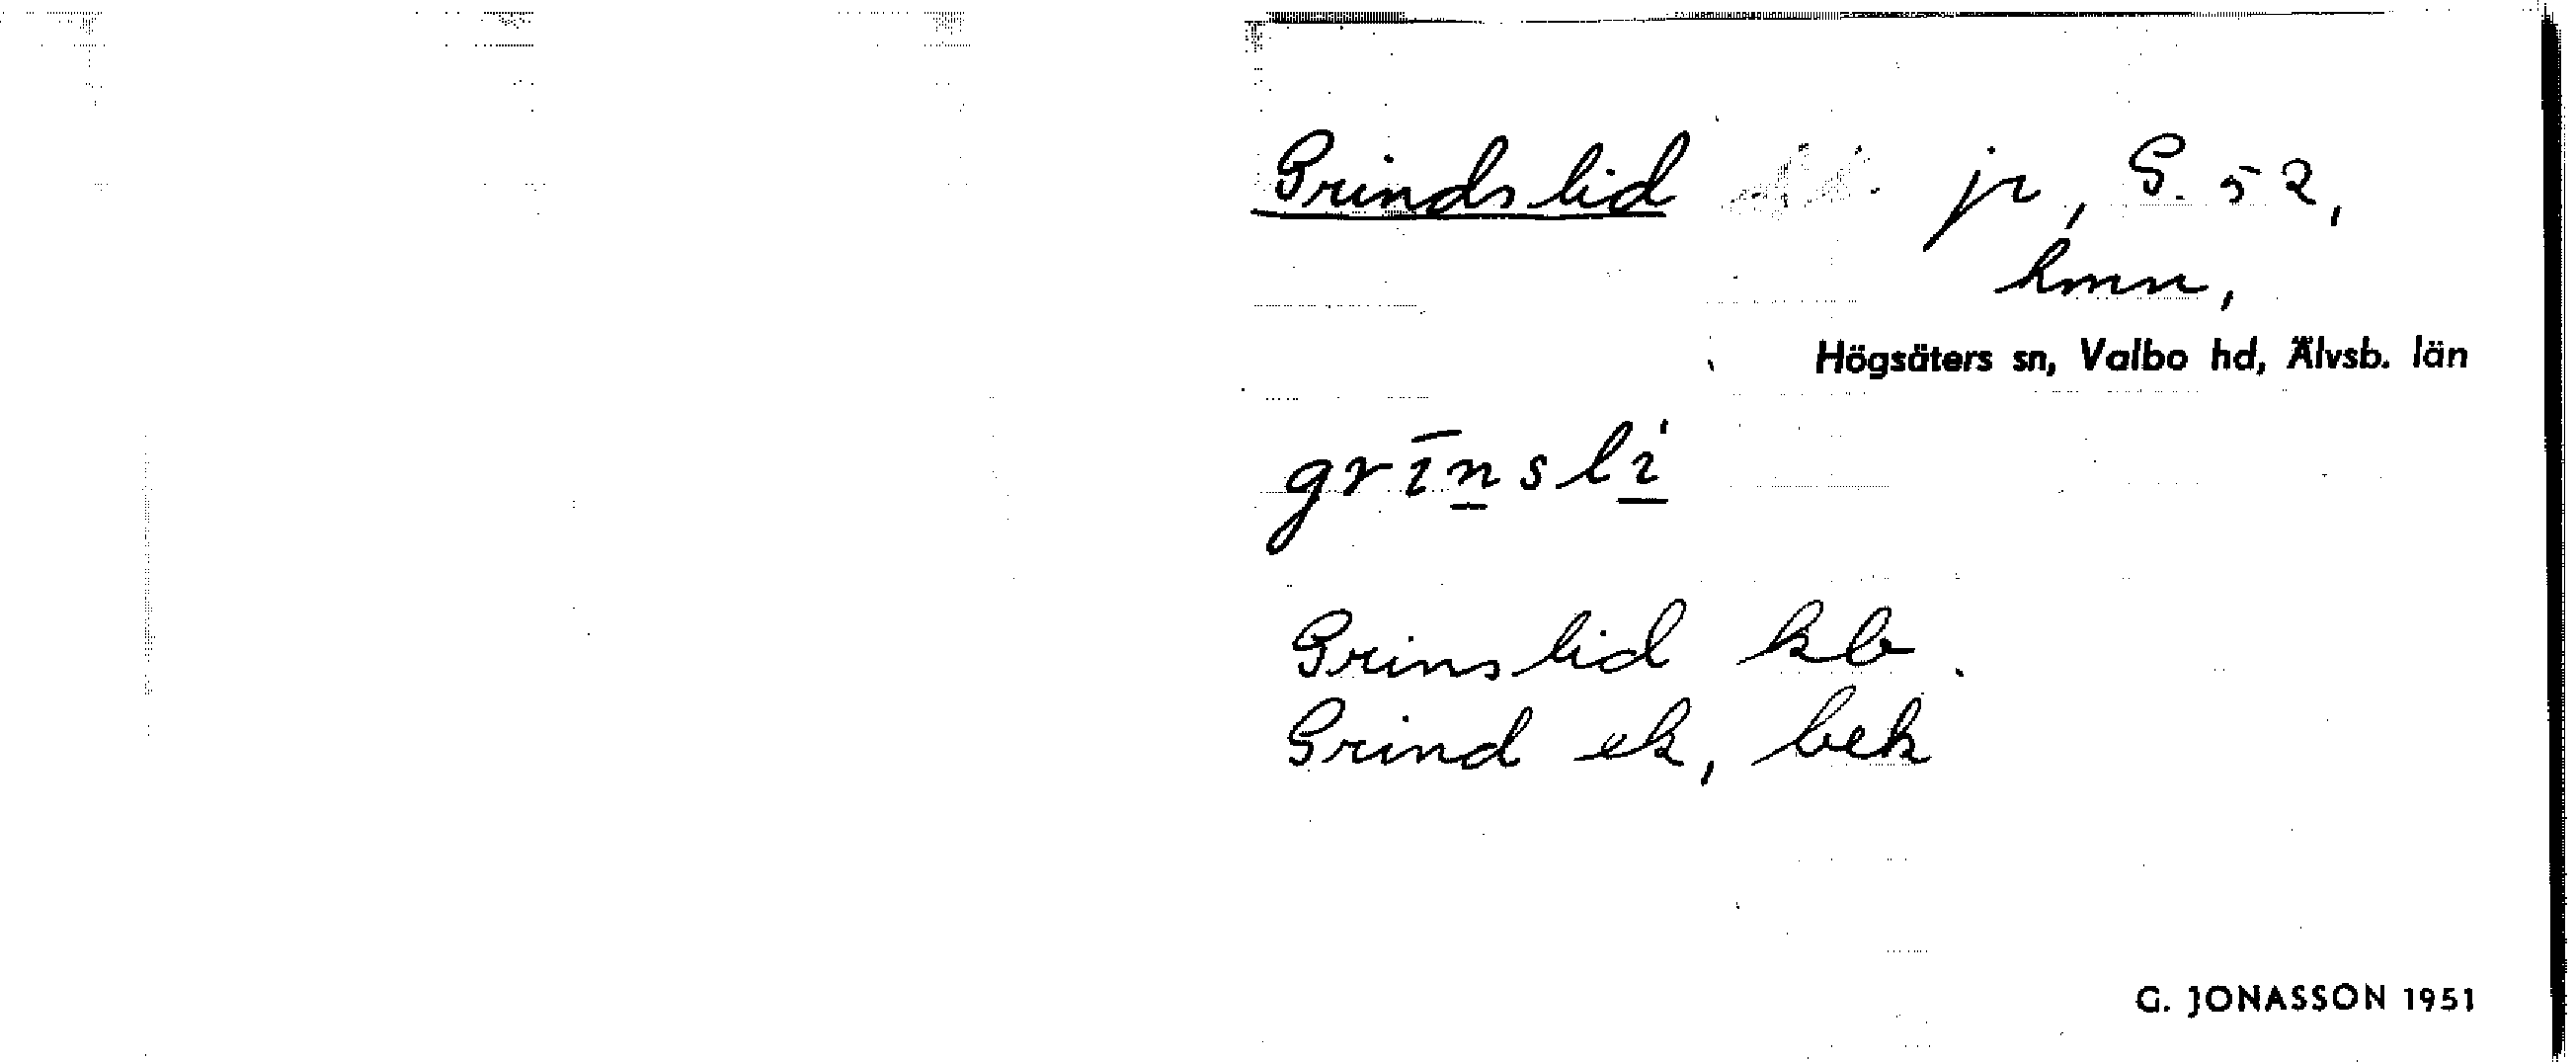 Grindslid jr, G. 52,
hmn,
Högsäters sn, Valbo hd, Älvsb. län
grīn̲sli̲
Grinslid kb.
Grind ek, bek
G. JONASSON 1951